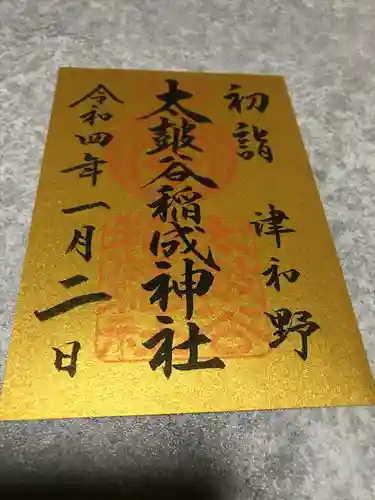 初詣
津和野
太皷谷稲成神社
令和四年一月二日